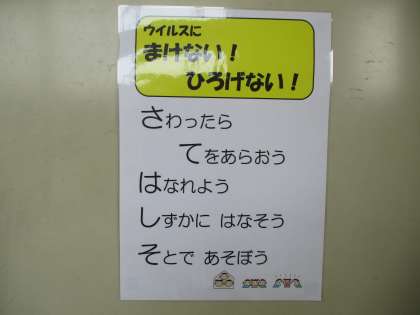 ウイルスに
まけない！
ひろげない！
さわったら
てをあらおう
はなれよう
しずかに はなそう
そとで あそぼう